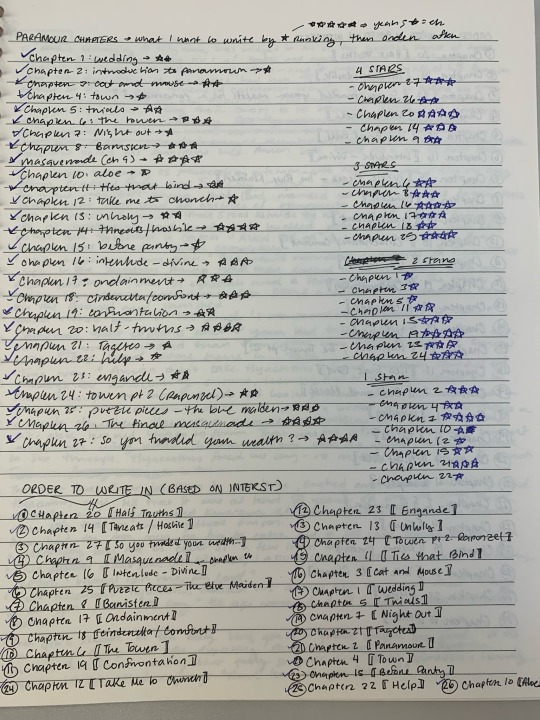 PARAMOUR CHAPTERS → what I want to write by ★ ranking, then order after
☆☆☆☆☆ → years ☆ = ch
Chapter 1: wedding → ☆☆
Chapter 2: introduction to paramour → ☆
Chapter 3: cat and mouse → ☆☆
Chapter 4: town → ☆
Chapter 5: trials → ☆☆
Chapter 6: the tower → ☆☆☆
Chapter 7: Night out → ☆
Chapter 8: Banister → ☆☆☆
masquerade (ch 9) → ☆☆☆☆
Chapter 10: aloe → ☆
Chapter 11: ties that bind → ☆☆
Chapter 12: take me to church → ☆
Chapter 13: unholy → ☆☆
Chapter 14: threats/hoskie → ☆☆☆☆
Chapter 15: before party → ☆
Chapter 16: interlude - divine → ☆☆☆
Chapter 17: ordainment → ☆☆☆
Chapter 18: cinderella/comfort → ☆☆☆
Chapter 19: confrontation → ☆☆
Chapter 20: half-truths → ☆☆☆☆
Chapter 21: Tagetes → ☆
Chapter 22: help → ☆
Chapter 23: engande → ☆☆
Chapter 24: tower pt 2 (Rapunzel) → ☆☆
Chapter 25: puzzle pieces - the blue maiden → ☆☆☆
Chapter 26: The final masquerade → ☆☆☆☆
Chapter 27: So you traded your wealth? → ☆☆☆☆
4 STARS
- Chapter 27 ☆☆☆
- Chapter 26 ☆☆
- Chapter 20 ☆☆☆☆
- Chapter 14 ☆☆☆
- Chapter 9 ☆☆
3 STARS
- Chapter 6 ☆☆
- Chapter 8 ☆☆☆
- Chapter 16 ☆☆☆☆
- Chapter 17 ☆☆☆
- Chapter 18 ☆☆
- Chapter 25 ☆☆☆
2 stars
- Chapter 1 ☆
- Chapter 3 ☆
- Chapter 5 ☆
- Chapter 11 ☆☆
- Chapter 13 ☆☆☆
- Chapter 19 ☆☆☆☆
- Chapter 23 ☆☆☆
- Chapter 24 ☆☆☆
1 Star
- Chapter 2 ☆☆☆
- Chapter 4 ☆☆
- Chapter 7 ☆☆☆☆
- Chapter 10 ☆★
- Chapter 12 ☆
- Chapter 15 ☆☆
- Chapter 21 ☆☆☆
- Chapter 22 ☆
ORDER TO WRITE IN (BASED ON INTERST)
① Chapter 20 [[Half Truths]]
② Chapter 14 [[Threats / Hoskie]]
③ Chapter 27 [[So you traded your wealth]]
④ Chapter 9 [[Masquerade]] - chapter 26
⑤ Chapter 16 [[Interlude - Divine]]
⑥ Chapter 25 [[Puzzle Pieces - The Blue Maiden]]
⑦ Chapter 8 [[Banister]]
⑧ Chapter 17 [[Ordainment]]
⑨ Chapter 18 [[cinderella / comfort]]
⑩ Chapter 6 [[The Tower]]
⑪ Chapter 19 [[Confrontation]]
㉔ Chapter 12 [[Take Me to Church]]
⑫ Chapter 23 [[Engande]]
⑬ Chapter 13 [[Unholy]]
⑭ Chapter 24 [[Tower pt 2. Rapunzel]]
⑮ Chapter 11 [[Ties that Bind]]
⑯ Chapter 3 [[Cat and Mouse]]
⑰ Chapter 1 [[Wedding]]
⑱ Chapter 5 [[Trials]]
⑲ Chapter 7 [[Night Out]]
⑳ Chapter 21 [[Tagetes]]
㉑ Chapter 2 [[Paramour]]
㉒ Chapter 4 [[Town]]
㉓ Chapter 15 [[Before Party]]
㉕ Chapter 22 [[Help]] ㉖ Chapter 10 [[Aloe